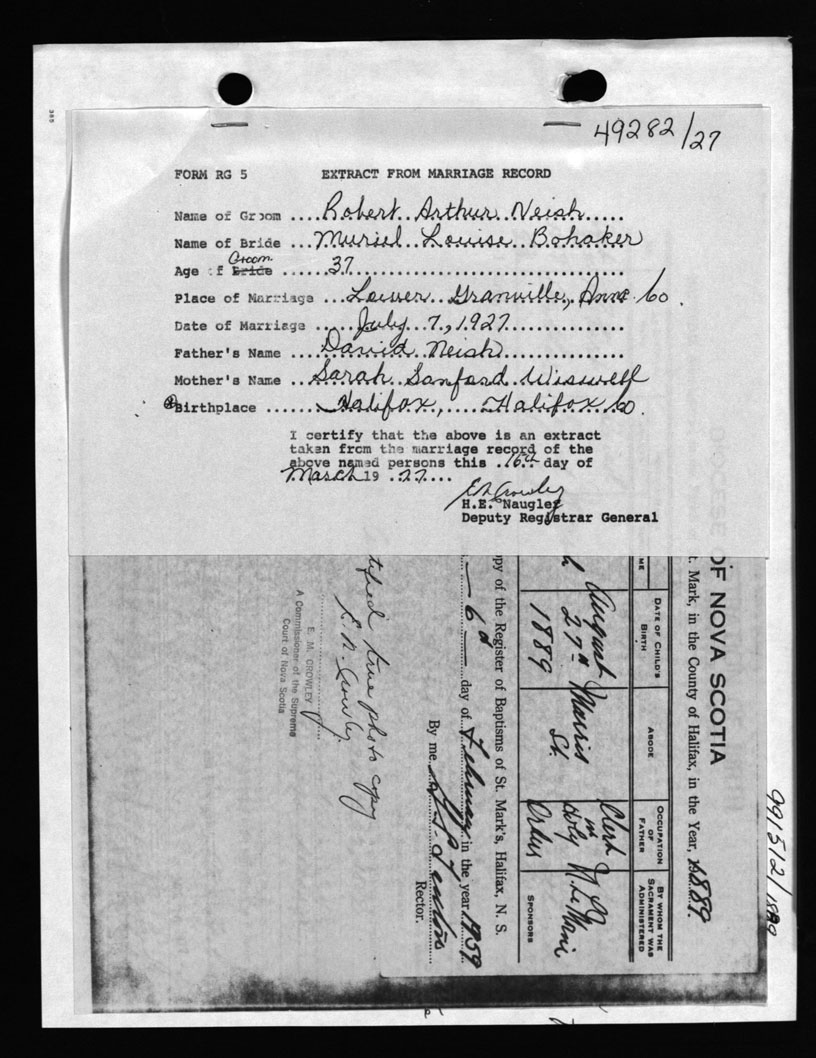 385
49282/27
FORM RG 5 EXTRACT FROM MARRIAGE RECORD
Name of Groom ....Robert Arthur Neish.....
Name of Bride ...Muriel Louise Bohaker
Groom
Age of Bride ......37
Place of Marriage ...Lower Granville, Anna Co.
Date of Marriage ....July 7, 1927
Father's Name ....David Neish
Mother's Name ..Sarah Sanford Wiswell
Birthplace .......Halifax, Halifax Co.
I certify that the above is an extract
taken from the marriage record of the
above named persons this .16th. day of
March 19 .77....
E M Crowley
H.E. Naugler
Deputy Registrar General
OF NOVA SCOTIA
t. Mark, in the County of Halifax, in the Year, 1889.
ME
DATE OF CHILD'S BIRTH
ABODE
OCCUPATION OF FATHER
BY WHOM THE SACRAMENT WAS ADMINISTERED
August 27th 1889
Morris St.
Clerk in Holy Orders
SPONSORS
opy of the Register of Baptisms of St. Mark's, Halifax, N. S.
6th day of February in the year 1939
By me,
Rector.
tified true photo copy
E. M. Crowley
E. M. CROWLEY
A Commissioner of the Supreme
Court of Nova Scotia
991512/1889